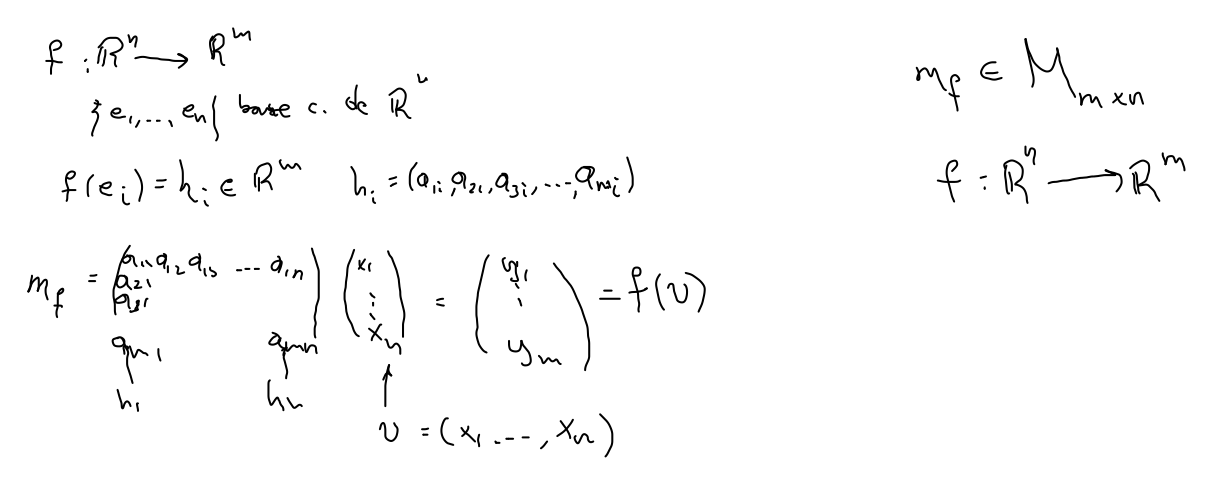 f : ℝⁿ ⟶ ℝᵐ
{e₁, ..., eₙ} base c. de ℝⁿ
f(eᵢ) = hᵢ ∈ ℝᵐ hᵢ = (a₁ᵢ, a₂ᵢ, a₃ᵢ, ..., aₘᵢ)
m_f = (a₁₁ a₁₂ a₁₃ ... a₁ₙ) (x₁) = (y₁) = f(v)
a₂₁ ⋮ ⋮
a₃₁
aₘ₁ aₘₙ xₙ yₘ
h₁ hₙ ↑
v = (x₁ ..., xₙ)
m_f ∈ M_{m×n}
f : ℝⁿ ⟶ ℝᵐ